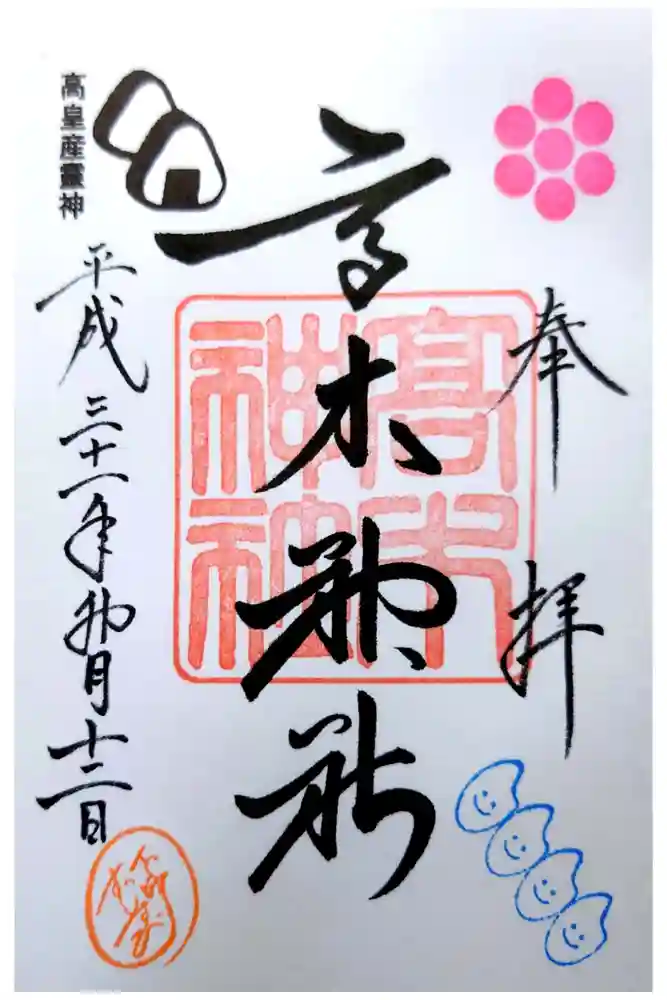 奉拝
高木神社
高木神社
高皇産靈神
平成三十一年卯月十二日